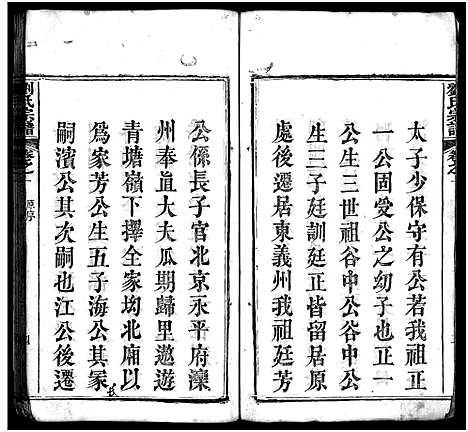 太子少保守有公若我祖正
一公固受公之幼子也正一
公生三世祖谷中公谷中公
生三子廷訓廷正皆留居原
處後遷居東義州我祖廷芳
公係長子官北京永平府灤
州奉直大夫瓜期歸里遨遊
青塘嶺下擇全家均北廂以
為家芳公生五子海公其冢
嗣濱公其次嗣也江公後遷
劉氏宗譜
卷之一
原序
四
劉氏宗譜
卷之一